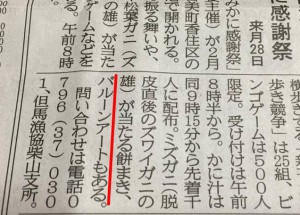 に感謝祭
来月28日
みかに感謝祭」が2月
振る舞いや、
松葉ガニ(ズ
の雄)が当た
ゲームなどを
る。午前8時
歩き競争」は25組、ビ
ンゴゲームは500人
限定。受け付けは午前
8時半から。かに汁は
同9時15分から先着千
人に配布。ミズガニ(脱
皮直後のズワイガニの
雄)が当たる餅まき、
バルーンアートもある。
問い合わせは電話0
796(37)030
1、但馬漁協柴山支所。